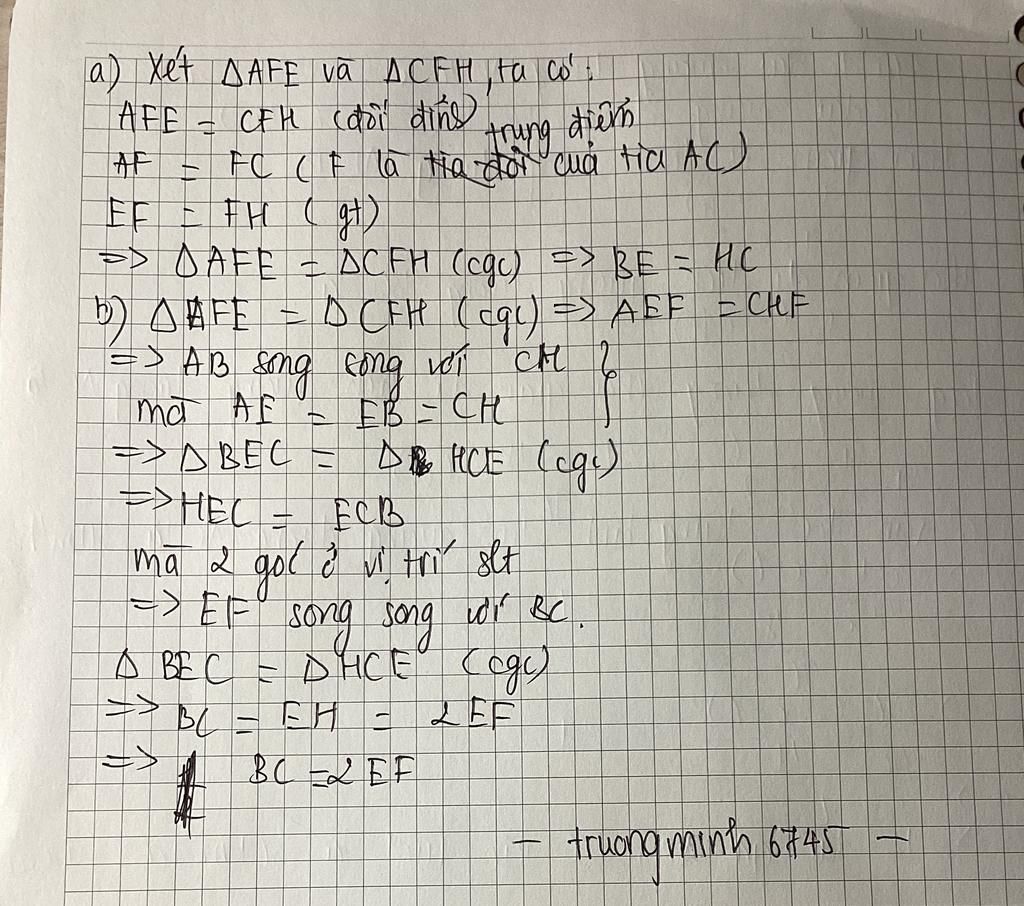 a) Xét ΔAFE và ΔCFH, ta có:
AFE = CFH (đối đỉnh)
trung điểm
AF = FC ( F là tia đối của tia AC)
EF = FH ( gt)
=> ΔAFE = ΔCFH (cgc) => BE = HC
b) ΔAFE = ΔCFH (cgc) => AEF = CHF
=> AB song song với CH }
mà AE = EB = CH
=> ΔBEC = Δ HCE (cgc)
=> HEC = ECB
mà 2 góc ở vị trí slt
=> EF song song với BC.
Δ BEC = ΔHCE (cgc)
=> BC = EH = 2EF
=> BC = 2EF
- truongminh 6745 -